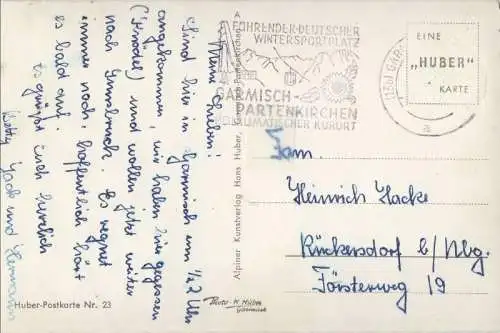 Meine Lieben!
Sind hier in Garmisch um ½2 Uhr
angekommen, wir haben hier gegessen
(Knödel) und wollen jetzt weiter
nach Innsbruck. Es regnet
immer noch hoffentlich hört
es bald auf.
Es grüßt Euch herzlich
Betty, Jack und Hermann
Huber-Postkarte Nr. 23
Alpiner Kunstverlag Hans Huber, Garmisch-Partenkirchen
FÜHRENDER DEUTSCHER
WINTERSPORTPLATZ
GARMISCH-
PARTENKIRCHEN
HEILKLIMATISCHER KURORT
(13b) GAR
a
EINE
„HUBER"
KARTE
Fam.
Heinrich Hacke
Rückersdorf b/Nbg.
Försterweg 19
Photo H. Huber
Garmisch